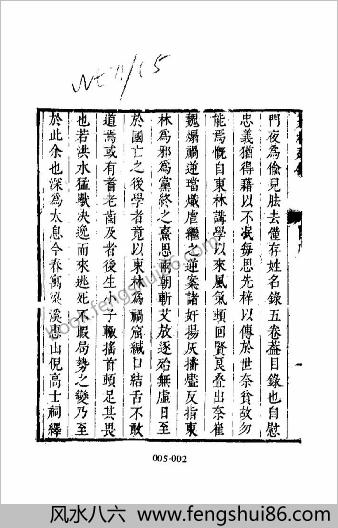 門夜為偷兒胠去僅存姓名錄五卷蓋目錄也自慰
忠義猶得藉以不泯每思先梓以傳於世奈貧故勿
能焉慨自東林講學以來風氣頓回賢良疊出奈崔
魏煽禍逆璫熾虐繼之逆案諸奸揚灰播虐反指東
林為邪為黨終之熹思兩朝斬艾放逐始無虛日至
於國亡之後學者竟以東林為禍窟緘口結舌不敢
道焉或有耆老齒及者後生小子輒搖首頓足其畏
也若洪水猛獸決逸而來逃死不暇局勢之變乃至
於此余也深為太息今春寓梁溪惠山倪高士祠繹
005-002
www.fengshui86.com
风水八六 www.fengshui86.com